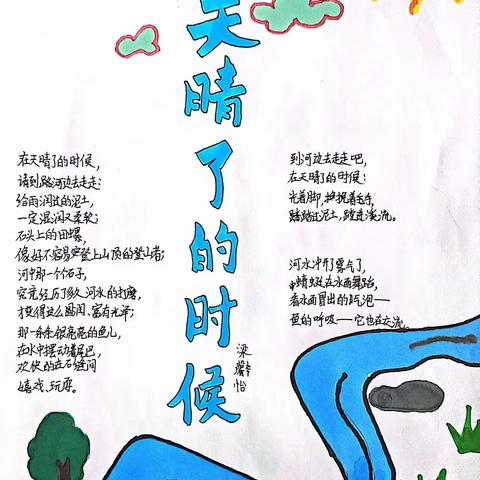 天晴了的时候
梁馨怡
在天晴了的时候,
请到路河边去走走:
给雨润过的泥土,
一定湿润又柔软;
石头上的田螺,
像好不容易登上山顶的登山者;
河中那一个个石子,
究竟经历了多久河水的打磨,
才变得这么圆润、富有光泽;
那一条条银亮亮的鱼儿,
在水中摆动着尾巴,
欢快的在石缝间
嬉戏、玩磨。
到河边去走走吧,
在天晴了的时候:
光着脚,挽挽着毛手,
踏踏过泥土,蹚过溪流。
河水冲开了雾气了,
蜻蜓在水面舞蹈,
看水面冒出的气泡一
鱼的呼吸一它也在交流。